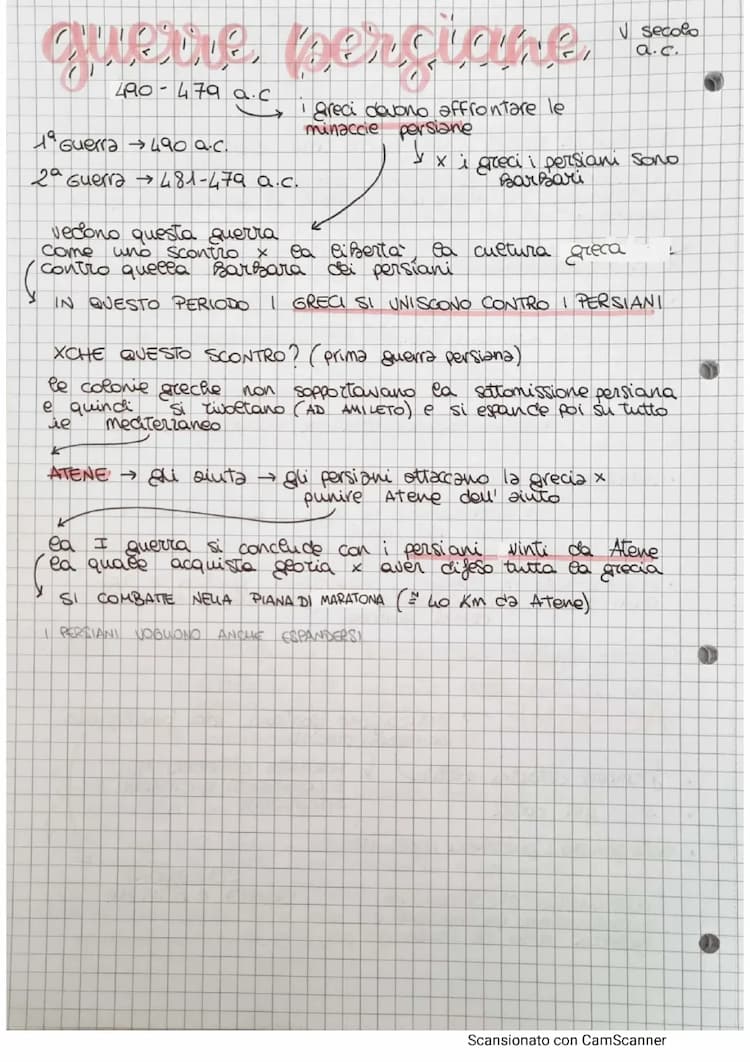 guerre persiane
V secolo
a.c.
490 - 479 a.c
i greci devono affrontare le
minaccie persiane
1ª Guerra → 490 a.c.
↓ x i greci i persiani sono
Barbari
2ª Guerra → 481-479 a.c.
vedono questa guerra
come uno scontro x la libertà, la cultura greca
contro quella Barbara dei persiani
IN QUESTO PERIODO I GRECI SI UNISCONO CONTRO I PERSIANI
XCHE QUESTO SCONTRO? (prima guerra persiana)
le colonie greche non sopportavano la sottomissione persiana
e quindi si rivoltano (AD AMILETO) e si espande poi su tutto
il mediterraneo
ATENE → gli aiuta → gli persiani attaccano la grecia x
punire Atene dell' aiuto
la I guerra si conclude con i persiani vinti da Atene
la quale acquista gloria x aver difeso tutta la grecia
SI COMBATTE NELLA PIANA DI MARATONA (≅ 40 Km da Atene)
I PERSIANI VOGLIONO ANCHE ESPANDERSI
Scansionato con CamScanner